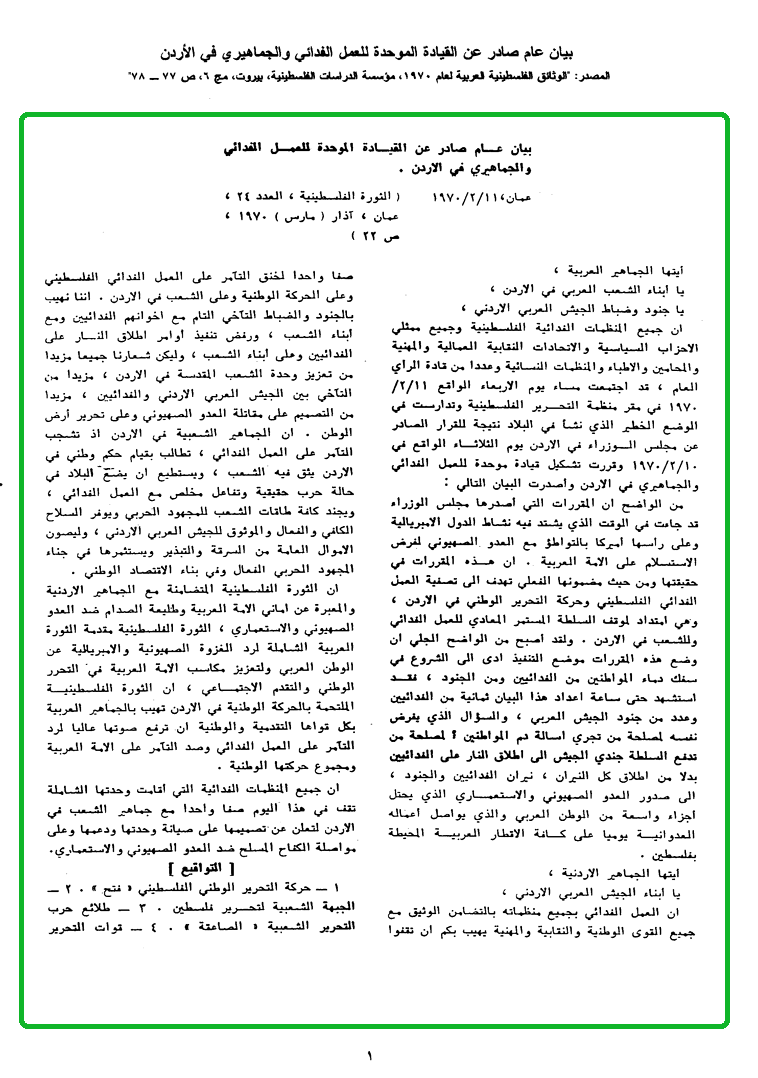 بيان عام صادر عن القيادة الموحدة للعمل الفدائي والجماهيري في الأردن
المصدر: "الوثائق الفلسطينية العربية لعام ١٩٧٠، مؤسسة الدراسات الفلسطينية، بيروت، مج ٦، ص ٧٧ – ٧٨"
بيان عــام صادر عن القيــادة الموحدة للعمــل الفدائي
والجماهيري في الاردن .
عمان، ١١/٢/١٩٧٠
( الثورة الفلسطينية ، العدد ٢٤ ،
عمان ، آذار ( مارس ) ١٩٧٠ ،
ص ٢٢ )
أيتها الجماهير العربية ،
يا أبناء الشعب العربي في الأردن ،
يا جنود وضباط الجيش العربي الأردني ،
ان جميع المنظمات الفدائية الفلسطينية وجميع ممثلي
الاحزاب السياسية والاتحادات النقابية العمالية والمهنية
والمحامين والاطباء والمنظمات النسائية وعددا من قادة الرأي
العام ، قد اجتمعت مساء يوم الاربعاء الواقع ١١/٢/
١٩٧٠ في مقر منظمة التحرير الفلسطينية وتدارست في
الوضع الخطير الذي نشأ في البلاد نتيجة للقرار الصادر
عن مجلس الوزراء في الاردن يوم الثلاثاء الواقع في
١٠/٢/١٩٧٠ وقررت تشكيل قيادة موحدة للعمل الفدائي
والجماهيري في الاردن وأصدرت البيان التالي :
من الواضح ان المقررات التي أصدرها مجلس الوزراء
قد جاءت في الوقت الذي يشتد فيه نشاط الدول الامبريالية
وعلى رأسها أميركا بالتواطؤ مع العدو الصهيوني لفرض
الاستسلام على الامة العربية . ان هذه المقررات في
حقيقتها ومن حيث مضمونها الفعلي تهدف الى تصفية العمل
الفدائي الفلسطيني وحركة التحرير الوطني في الاردن ،
وهي امتداد لموقف السلطة المستمر المعادي للعمل الفدائي
وللشعب في الاردن . ولقد اصبح من الواضح الجلي ان
وضع هذه المقررات موضع التنفيذ ادى الى الشروع في
سفك دماء المواطنين من الفدائيين ومن الجنود ، فقــد
استشهد حتى ساعة اعداد هذا البيان ثمانية من الفدائيين
وعدد من جنود الجيش العربي ، والسؤال الذي يفرض
نفسه لمصلحة من تجري اسالة دم المواطنين ؟ لمصلحة من
تدفع السلطة جندي الجيش الى اطلاق النار على الفدائيين
بدلا من اطلاق كل النيران ، نيران الفدائيين والجنود ،
الى صدور العدو الصهيوني والاستعمــاري الذي يحتل
أجزاء واسعة من الوطن العربي والذي يواصل أعماله
العدوانيــة يوميا على كــافة الاقطار العربيــة المحيطة
بفلسطين .
أيتها الجماهير الاردنية ،
يا أبناء الجيش العربي الاردني ،
ان العمل الفدائي بجميع منظماته بالتضامن الوثيق مع
جميع القوى الوطنية والنقابية والمهنية يهيب بكم ان تقفوا
صفا واحدا لخنق التآمر على العمل الفدائي الفلسطيني
وعلى الحركة الوطنية وعلى الشعب في الاردن . اننا نهيب
بالجنود والضباط التآخي التام مع اخوانهم الفدائيين ومع
أبناء الشعب ، ورفض تنفيذ أوامر اطلاق النــار على
الفدائيين وعلى أبناء الشعب ، وليكن شعارنا جميعا مزيدا
من تعزيز وحدة الشعب المقدسة في الاردن ، مزيدا من
التآخي بين الجيش العربي الاردني والفدائيين ، مزيدا
من التصميم على مقاتلة العدو الصهيوني وعلى تحرير أرض
الوطن . ان الجماهير الشعبية في الاردن اذ تشجب
التآمر على العمل الفدائي ، تطالب بقيام حكم وطني في
الاردن يثق فيه الشعب ، ويستطيع ان يضع البلاد في
حالة حرب حقيقية وتفاعل مخلص مع العمل الفدائي ،
ويجند كافة طاقات الشعب للمجهود الحربي ويوفر السلاح
الكافي والفعال والموثوق للجيش العربي الاردني ، وليصون
الاموال العامة من السرقة والتبذير ويستثمرها في جناء
المجهود الحربي الفعال وفي بناء الاقتصاد الوطني .
ان الثورة الفلسطينية المتضامنة مع الجماهير الاردنية
والمعبرة عن اماني الامة العربية وطليعة الصدام ضد العدو
الصهيوني والاستعماري ، الثورة الفلسطينية مقدمة الثورة
العربية الشاملة لرد الغزوة الصهيونية والامبريالية عن
الوطن العربي ولتعزيز مكاسب الامة العربية في التحرر
الوطني والتقدم الاجتمــاعي ، ان الثورة الفلسطينيــة
الملتحمة بالحركة الوطنية في الاردن تهيب بالجماهير العربية
بكل قواها التقدمية والوطنية ان ترفع صوتها عاليا لرد
التآمر على العمل الفدائي وصد التآمر على الامة العربية
ومجموع حركتها الوطنية .
ان جميع المنظمات الفدائية التي أقامت وحدتها الشاملة
تقف في هذا اليوم صفا واحدا مع جماهير الشعب في
الاردن لتعلن عن تصميمها على صيانة وحدتها ودعمها وعلى
مواصلة الكفاح المسلح ضد العدو الصهيوني والاستعماري.
[ التواقيع ]
١ – حركة التحرير الوطني الفلسطيني « فتح » . ٢ –
الجبهة الشعبية لتحــرير فلسطين . ٣ – طلائع حرب
التحرير الشعبية « الصاعقة » . ٤ – قوات التحرير
١